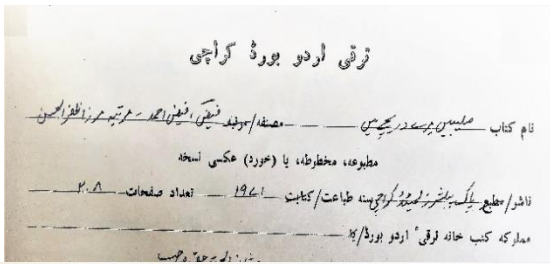 ترقی اردو بورڈ کراچی
نام کتاب صلیبیں مرے دریچے میں مصنفہ/مرتبہ فیض، فیض احمد - مرتبہ مرزا ظفر الحسن
مطبوعہ، مخطوطہ، یا (خورد) عکسی نسخہ
ناشر/مطبع پاک پبلشرز لمیٹڈ کراچی سنہ طباعت/کتابت ۱۹۷۱ تعداد صفحات ۲۰۸
مملوکہ کتب خانہ ترقی اردو بورڈ/